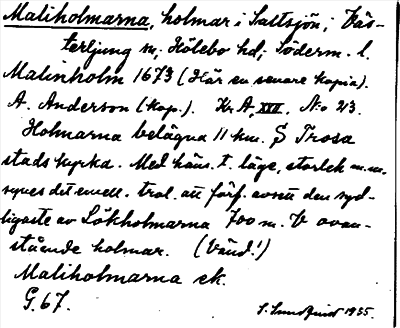 Maliholmarna, holmar i Saltsjön; Väs-
terljung sn; Hölebo hd; Söderm. l.
Malinholm 1673 (Här en senare kopia).
A. Anderson (kop.). Kr A, XXII. No 23.
Holmarna belägna 11 km. S Trosa
stads kyrka. Med häns. t. läge, storlek m.m.
synes det emell. trol. att förf. avsett den syd-
ligaste av Lökholmarna 700 m. V ovan-
stående holmar. (Vänd!)
Maliholmarna ek.
G. 67.
S. Lundqvist 1935.